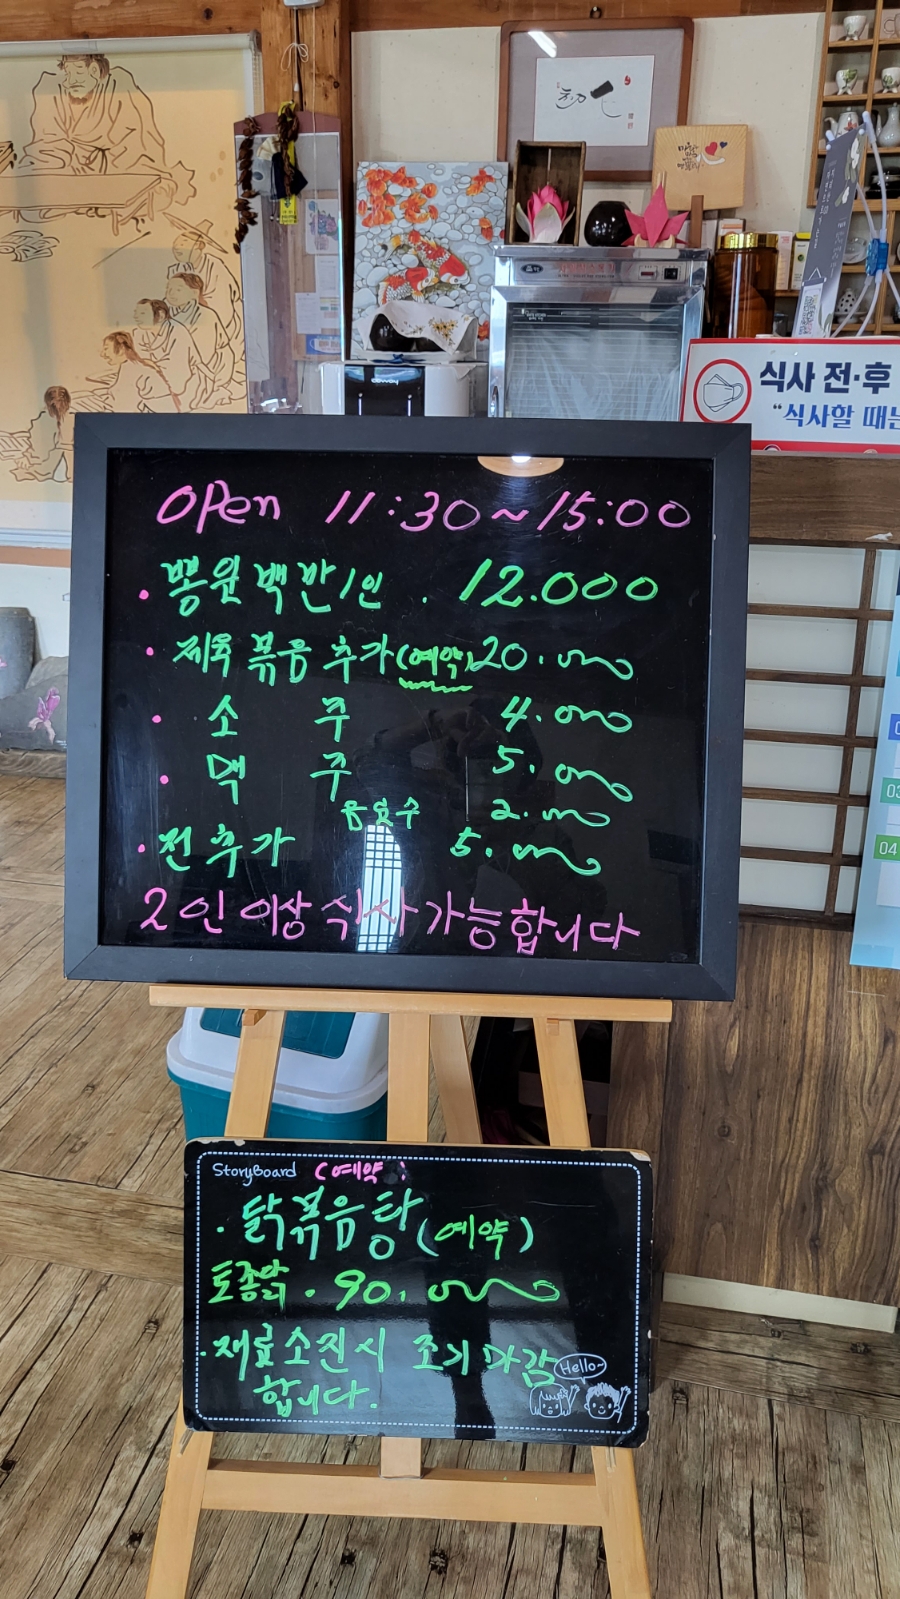 식사 전·후
"식사할 때는
coway
open 11:30~15:00
· 뽕원백반/1인 . 12.000
· 제육볶음추가(예약) 20.000
· 소 주 4.000
· 맥 주 5.000
음료수 2.000
· 전추가 5.000
2인이상식사가능합니다
03
04
StoryBoard (예약:
· 닭볶음탕(예약)
토종닭 . 90.000
· 재료소진시 조기마감
Hello~
합니다.